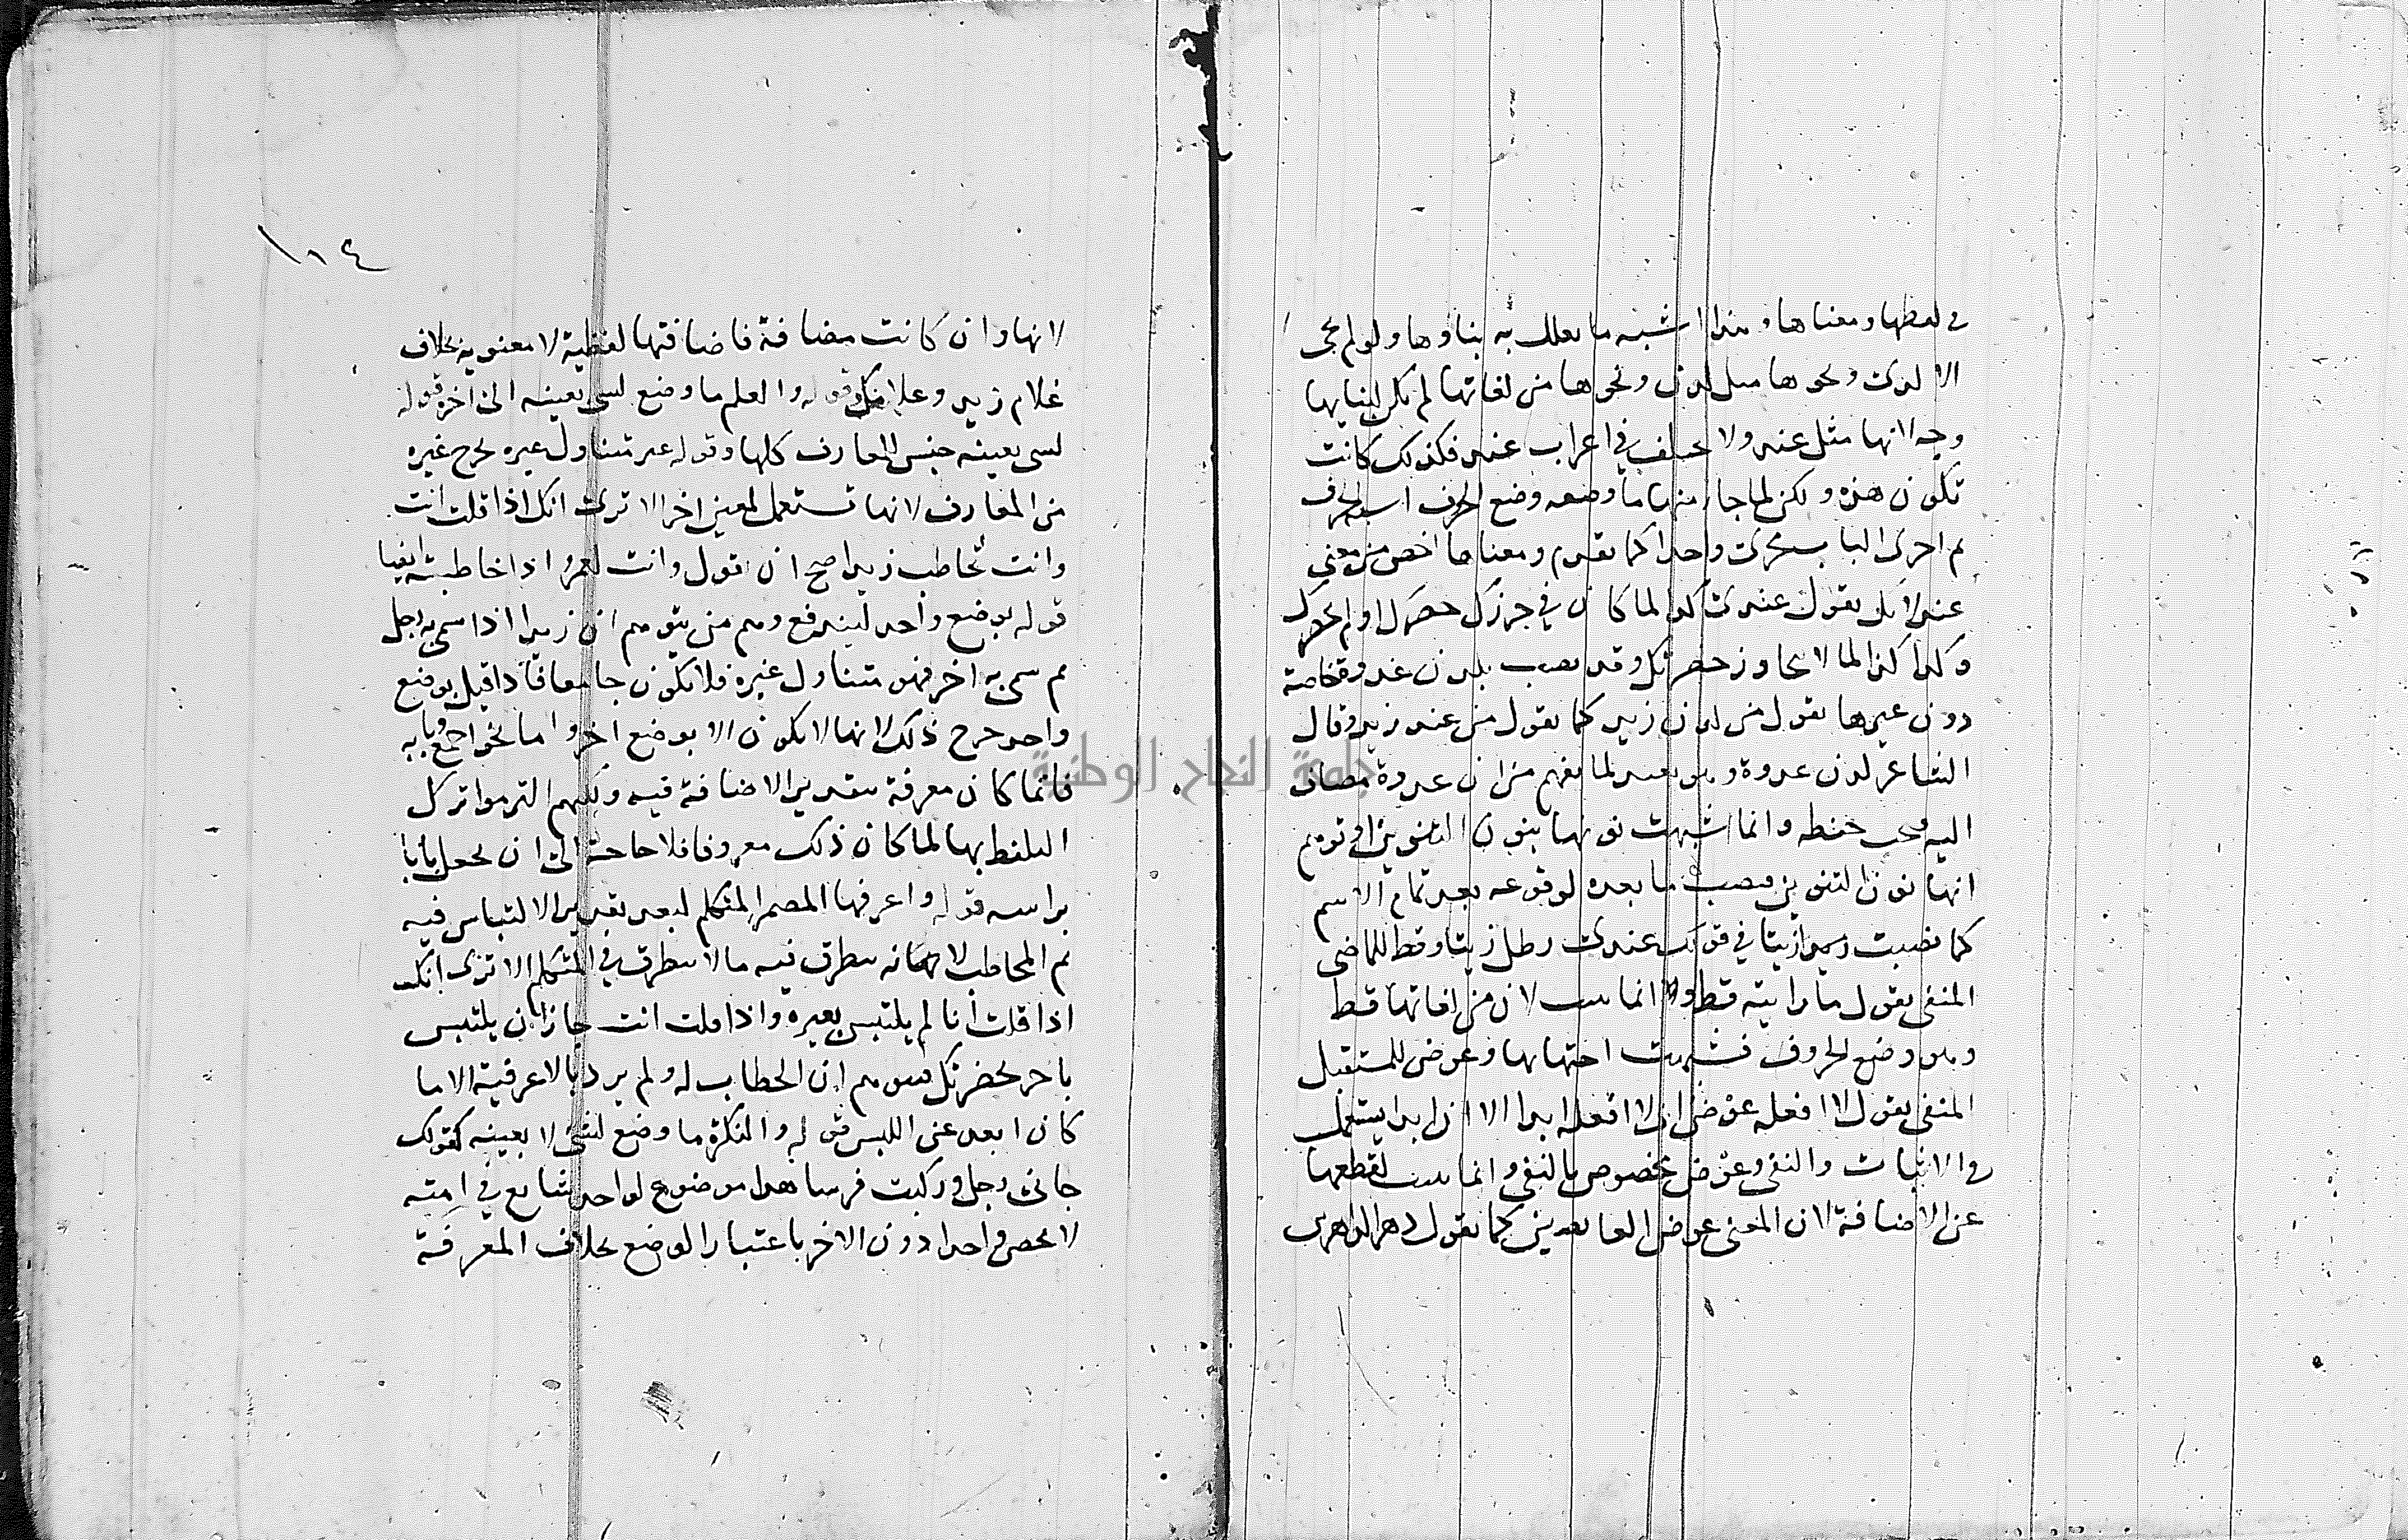 في لفظها ومعناها وهذا اشبه ما يعلل به بناوها ولو لم يجى
الا لدى ونحوها مثل لدن ونحوها من لغاتها لم يكن لبنايها
وجه لانها مثل عند ولا يختلف في اعراب عند فكذلك كانت
تكون هذه ولكن لما جاء منها ما وضعه وضع الحرف اشبه الحرف
ثم اجرى الباب مجرى واحدا كما تقدم ومعناها اخص من معنى
عند لانك تقول عندى كذا لما كان في حرزك حضرك او لم يحضرك
وكذا لما لا يتجاوز حضرتك وقد نصب بلدن غدوة خاصة
دون غيرها تقول من لدن زيد كما تقول من عند زيد وقال
الشاعر لدن غدوة وهو بعيد لما يفهم من ان غدوة مضاف
اليه فيجب خفضه وانما شبهت نونها بنون التنوين او توهم
انها نون التنوين فنصب ما بعده لوقوعه بعد تمام الاسم
كما نصبت زيتا في قولك عندى رطل زيتا وقط للماضى
المنفى تقول ما رايته قط وانما بنيت لان من لغاتها قط
وهو وضع الحروف فشبهت اختها بها وعوض للمستقبل
المنفى تقول لا افعله عوض اى لا افعله ابدا الا ان ابدا يستعمل
في الاثبات والنفى وعوض مخصوص بالنفى وانما بنيت لقطعها
عن الاضافة لان المعنى عوض العايضين كما تقول دهر الداهرين
١٠٤
لانها وان كانت مضافة فاضافتها لفظية لا معنوية بخلاف
غلام زيد وغلامك قوله والعلم ما وضع لشى بعينه الى اخره قوله
لشى بعينه جنس للمعارف كلها وقوله غير متناول غيره يخرج غيره
من المعارف لانها تستعمل لمعين اخر الا ترى انك اذا قلت انت
وانت تخاطب زيدا صح ان تقول وانت لعمرو اذا خاطبته ايضا
قوله بوضع واحد ليندفع وهم من يتوهم ان زيدا اذا سمى به رجل
ثم سمى به اخر فهو متناول غيره فلا يكون جامعا فاذا قيل بوضع
واحد خرج ذلك لانها لا يكون الا بوضع اخر واما نحو اجمع وبابه
فانما كان معرفة بتقدير الاضافة فيه ولكنهم التزموا ترك
التلفظ بها لما كان ذلك معروفا فلا حاجة الى ان يجعل بابا
براسه قوله واعرفها المضمر المتكلم لبعد تقدير الالتباس فيه
ثم المخاطب لانه يتطرق فيه ما لا يتطرق في المتكلم الا ترى انك
اذا قلت انا لم يلتبس بغيره واذا قلت انت جاز ان يلتبس
باخر بحضرتك فيتوهم ان الخطاب له ولم يرد بالاعرفية الا ما
كان ابعد عن اللبس قوله والنكرة ما وضع لشى لا بعينه كقولك
جانى رجل وركبت فرسا هذا موضوع لواحد شايع في امته
لا يخص واحدا دون الاخر باعتبار الوضع بخلاف المعرفة
جامعة النجاح الوطنية